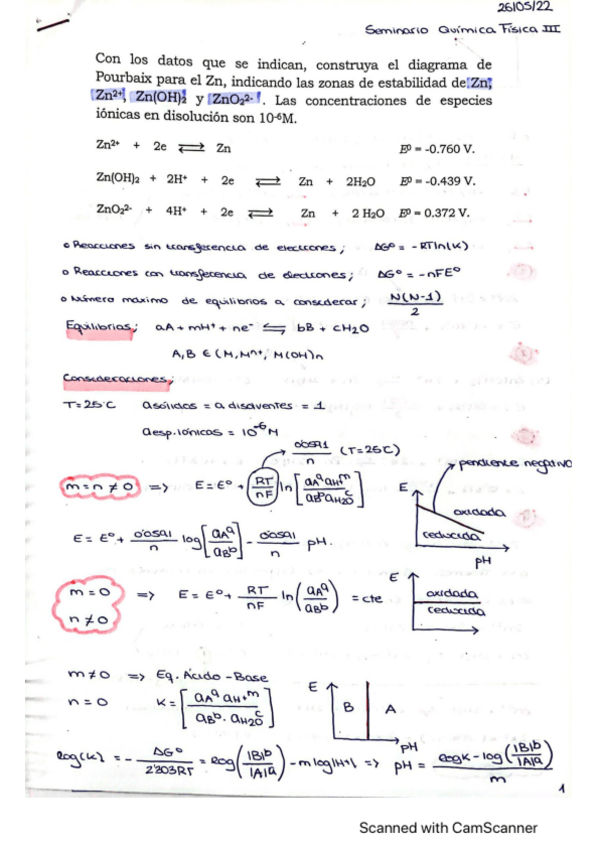 26/05/22
Seminario Química Física III
Con los datos que se indican, construya el diagrama de
Pourbaix para el Zn, indicando las zonas de estabilidad de Zn,
Zn²⁺, Zn(OH)₂ y ZnO₂²⁻. Las concentraciones de especies
iónicas en disolución son 10⁻⁶M.
Zn²⁺ + 2e ⇌ Zn E⁰ = -0.760 V.
Zn(OH)₂ + 2H⁺ + 2e ⇌ Zn + 2H₂O E⁰ = -0.439 V.
ZnO₂²⁻ + 4H⁺ + 2e ⇌ Zn + 2 H₂O E⁰ = 0.372 V.
o Reacciones sin transferencia de electrones; ΔG° = -RTln(K)
o Reacciones con transferencia de electrones; ΔG° = -nFE°
o Número máximo de equilibrios a considerar; N(N-1)/2
Equilibrios; aA + mH⁺ + ne⁻ ⇌ bB + cH₂O
A, B ∈ (M, Mⁿ⁺, M(OH)n
Consideraciones;
T = 25°C a sólidos = a disolventes = 1
a esp. iónicas = 10⁻⁶ M
0'0591/n (T=25C)
pendiente negativa
m = n ≠ 0 => E = E° + RT/nF ln[aAᵃ aH⁺ᵐ / aBᵇ aH₂Oᶜ]
E
oxidada
reducida
pH
E = E° + 0'0591/n log[aAᵃ/aBᵇ] - 0'0591/n pH.
m = 0
n ≠ 0
=> E = E° + RT/nF ln(aAᵃ/aBᵇ) = cte
E
oxidada
reducida
m ≠ 0 => Eq. Ácido-Base
n = 0 K = [aAᵃ aH⁺ᵐ / aBᵇ · aH₂Oᶜ]
E
B A
pH
log(K) = - ΔG°/2'303RT = log(|B|ᵇ/|A|ᵃ) - m log|H⁺| => pH = (log K - log(|B|ᵇ/|A|ᵃ))/m
1
Scanned with CamScanner